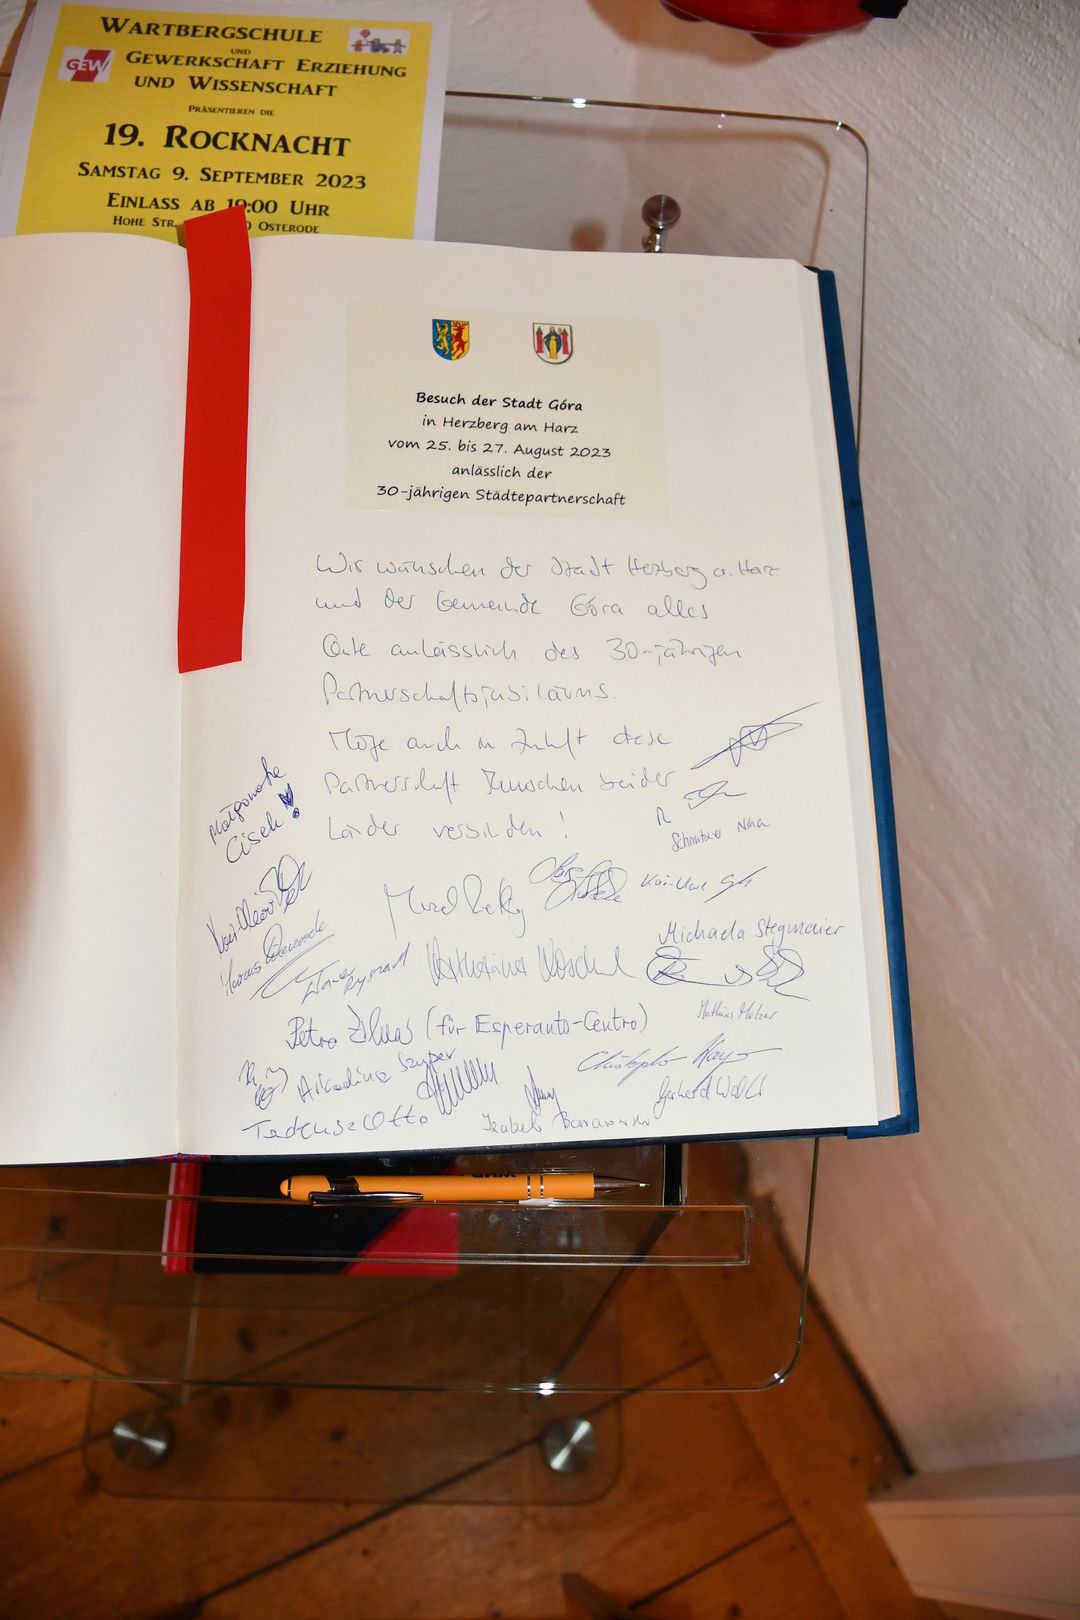 WARTBERGSCHULE
UND
GEW
GEWERKSCHAFT ERZIEHUNG
UND WISSENSCHAFT
PRÄSENTIEREN DIE
19. ROCKNACHT
SAMSTAG 9. SEPTEMBER 2023
EINLASS AB 19:00 UHR
HOHE STR. OSTERODE
Besuch der Stadt Góra
in Herzberg am Harz
vom 25. bis 27. August 2023
anlässlich der
30-jährigen Städtepartnerschaft
Wir wünschen der Stadt Herzberg a. Harz
und der Gemeinde Góra alles
Gute anlässlich des 30-jährigen
Partnerschaftsjubiläums.
Möge auch in Zukunft diese
Partnerschaft Menschen beider
Länder verbinden!
Nina
Michaela Stegmaier
Petro (für Esperanto-Centro)
Arkadiusz Szuper
Christopher
Gerhard
Tadeusz Otto
Izabela